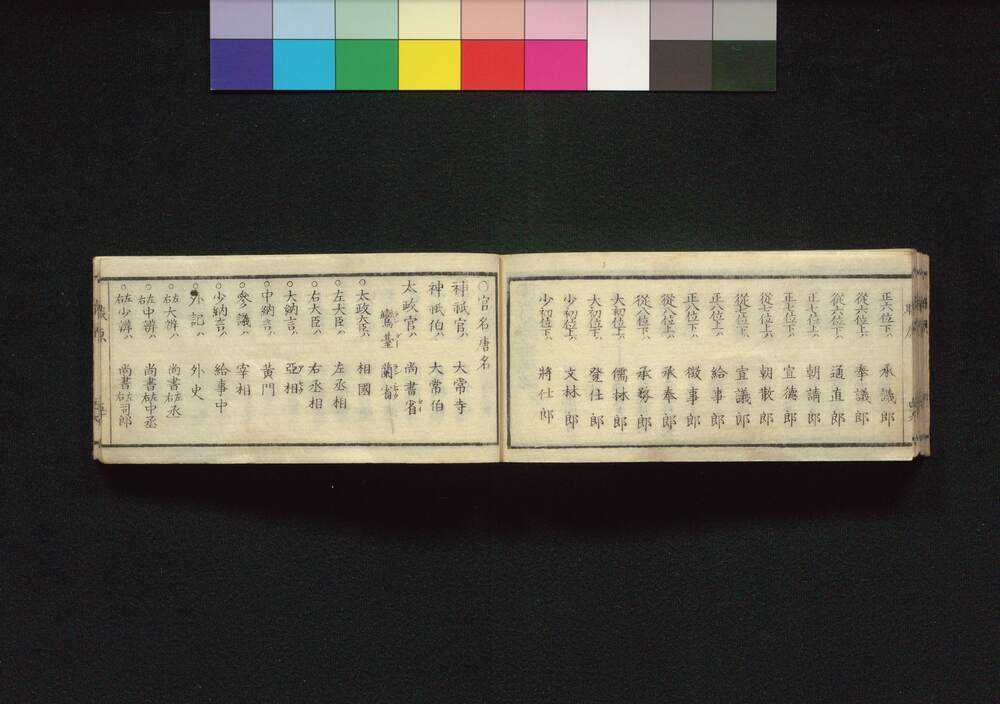 正六位下ハ 承議郎
從六位上ハ 奉議郎
從六位下ハ 通直郎
正七位上ハ 朝請郎
正七位下ハ 宣徳郎
從七位上ハ 朝散郎
從七位下ハ 宣議郎
正八位上ハ 給事郎
正八位下ハ 徴事郎
從八位上ハ 承奉郎
從八位下ハ 承務郎
大初位上ハ 儒林郎
大初位下ハ 登仕郎
少初位上ハ 文林郎
少初位下ハ 將仕郎
○官名唐名
神祇官ハ 大常寺
神祇伯ハ 大常伯
太政官ハ 尚書省
鸞臺 蘭省
○太政大臣ハ 相國
○左大臣ハ 左丞相
○右大臣ハ 右丞相
○大納言ハ 亞相
○中納言ハ 黄門
○參議ハ 宰相
○少納言ハ 給事中
○外記ハ 外史
○左右大辨ハ 尚書左右丞
○左右中辨ハ 尚書左右中丞
○左右少辨ハ 尚書左右司郎